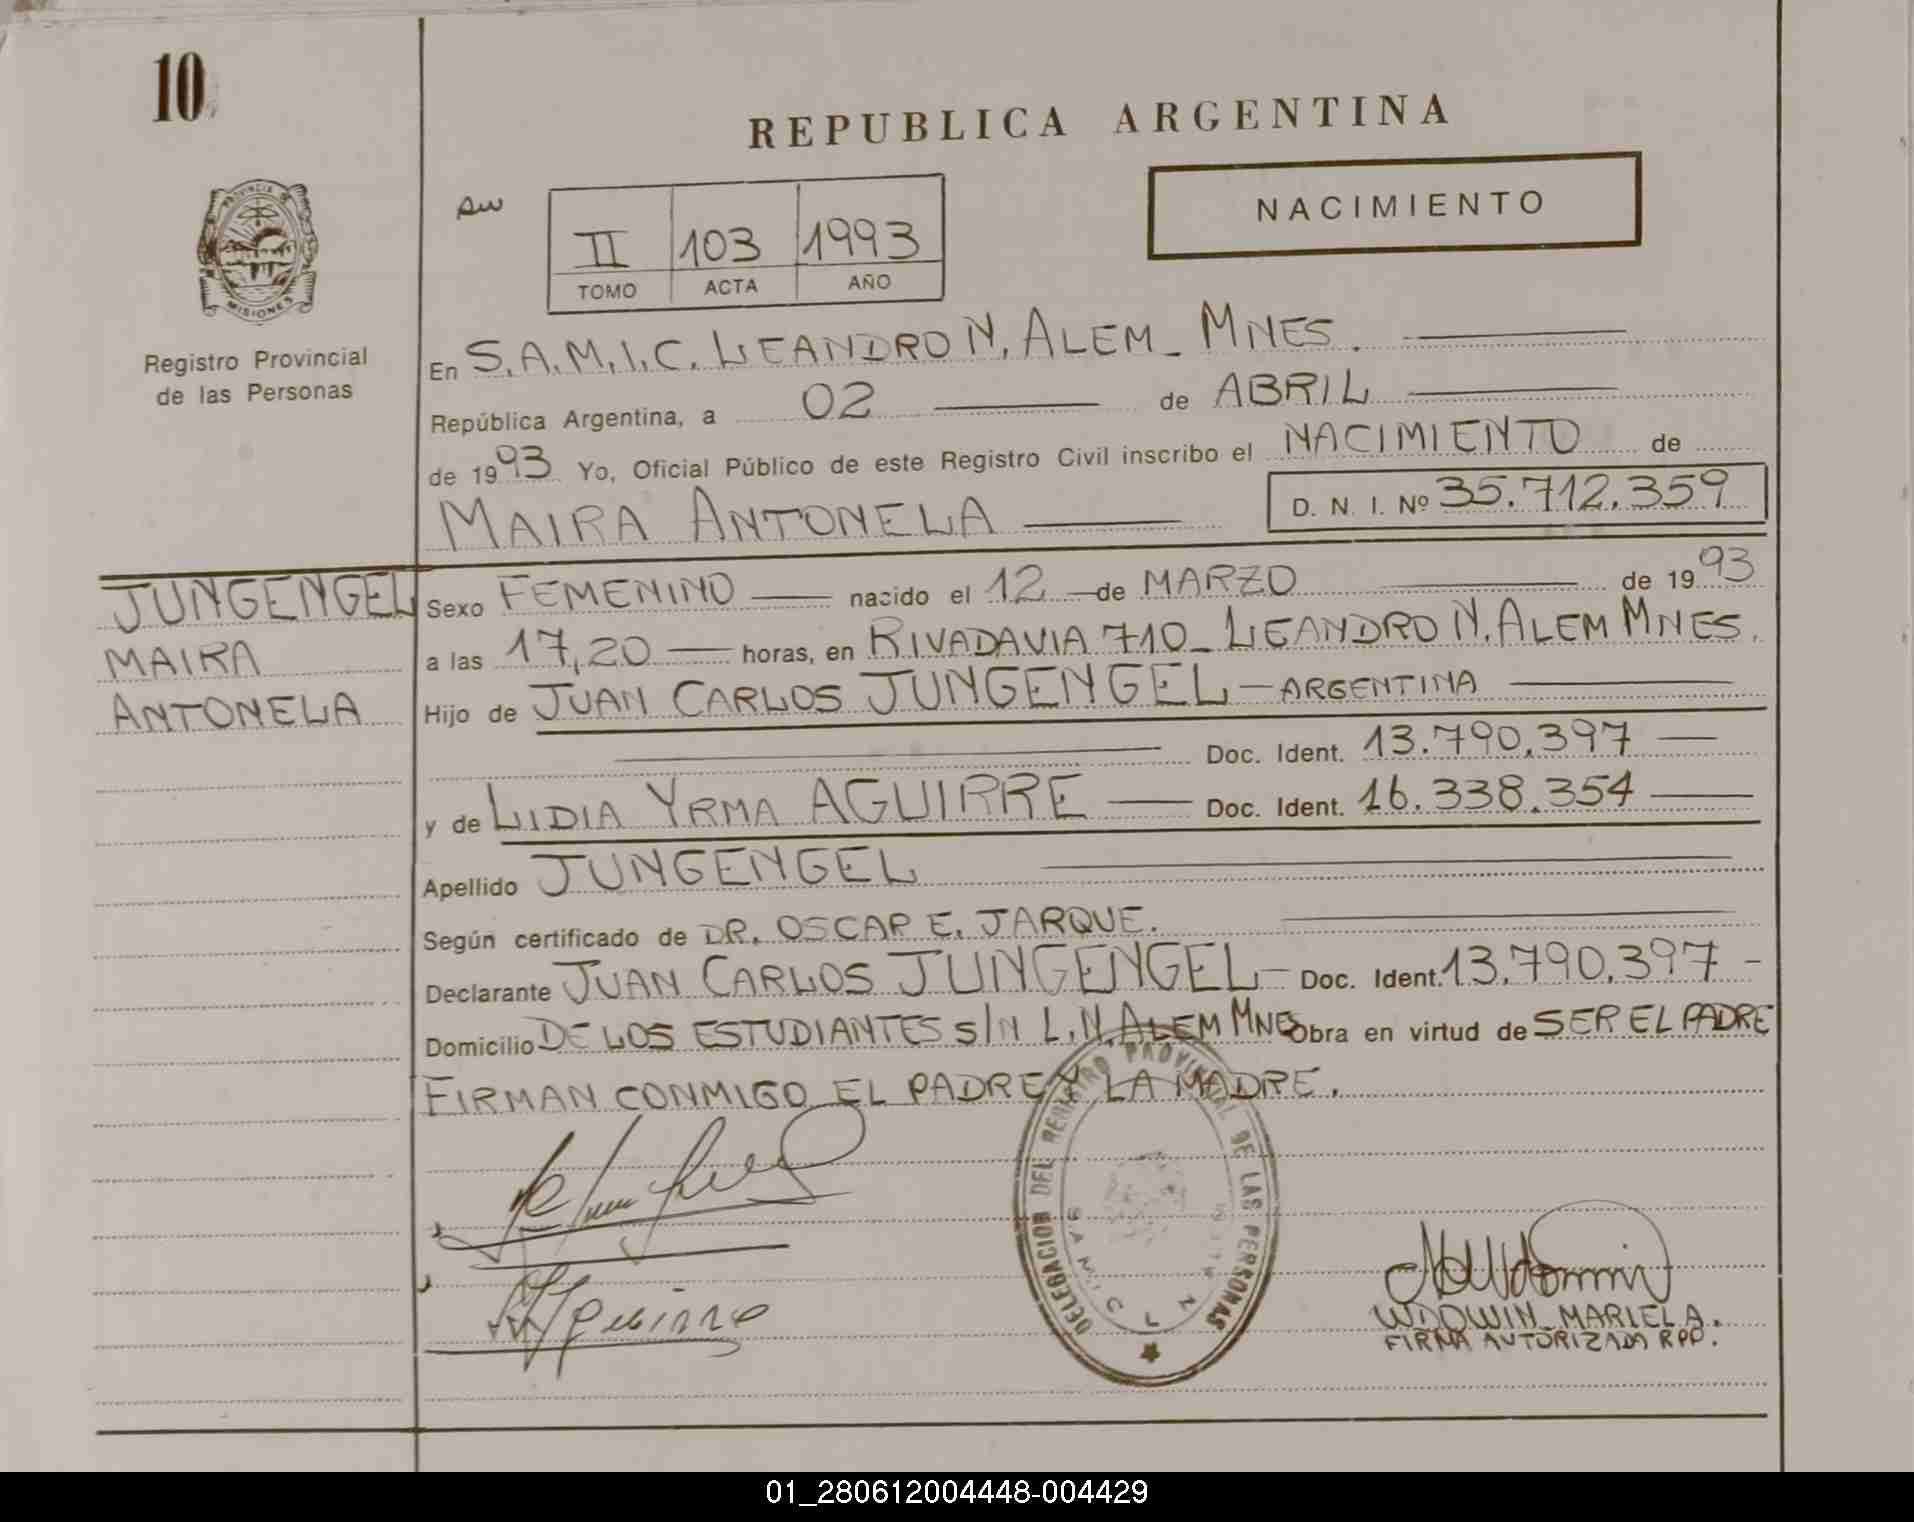 10
REPUBLICA ARGENTINA
PROVINCIA DE
MISIONES
Registro Provincial
de las Personas
II 103 1993
TOMO ACTA AÑO
NACIMIENTO
En S.A.M.I.C. LEANDRO N. ALEM - MNES.
República Argentina, a 02 de ABRIL
de 1993 Yo, Oficial Público de este Registro Civil inscribo el NACIMIENTO de
MAIRA ANTONELA D. N. I. Nº 35.712.359
JUNGENGEL
MAIRA
ANTONELA
Sexo FEMENINO nacido el 12 de MARZO de 1993
a las 17,20 horas, en RIVADAVIA 710 - LEANDRO N. ALEM MNES.
Hijo de JUAN CARLOS JUNGENGEL - ARGENTINA
Doc. Ident. 13.790.397
y de LIDIA YRMA AGUIRRE Doc. Ident. 16.338.354
Apellido JUNGENGEL
Según certificado de DR. OSCAR E. JARQUE.
Declarante JUAN CARLOS JUNGENGEL - Doc. Ident. 13.790.397 -
Domicilio DE LOS ESTUDIANTES S/N L.N. ALEM MNES Obra en virtud de SER EL PADRE
FIRMAN CONMIGO EL PADRE Y LA MADRE.
DELEGACION DEL REGISTRO PROVINCIAL DE LAS PERSONAS
WDOWIN MARIELA.
FIRMA AUTORIZADA RPP.
01_280612004448-004429